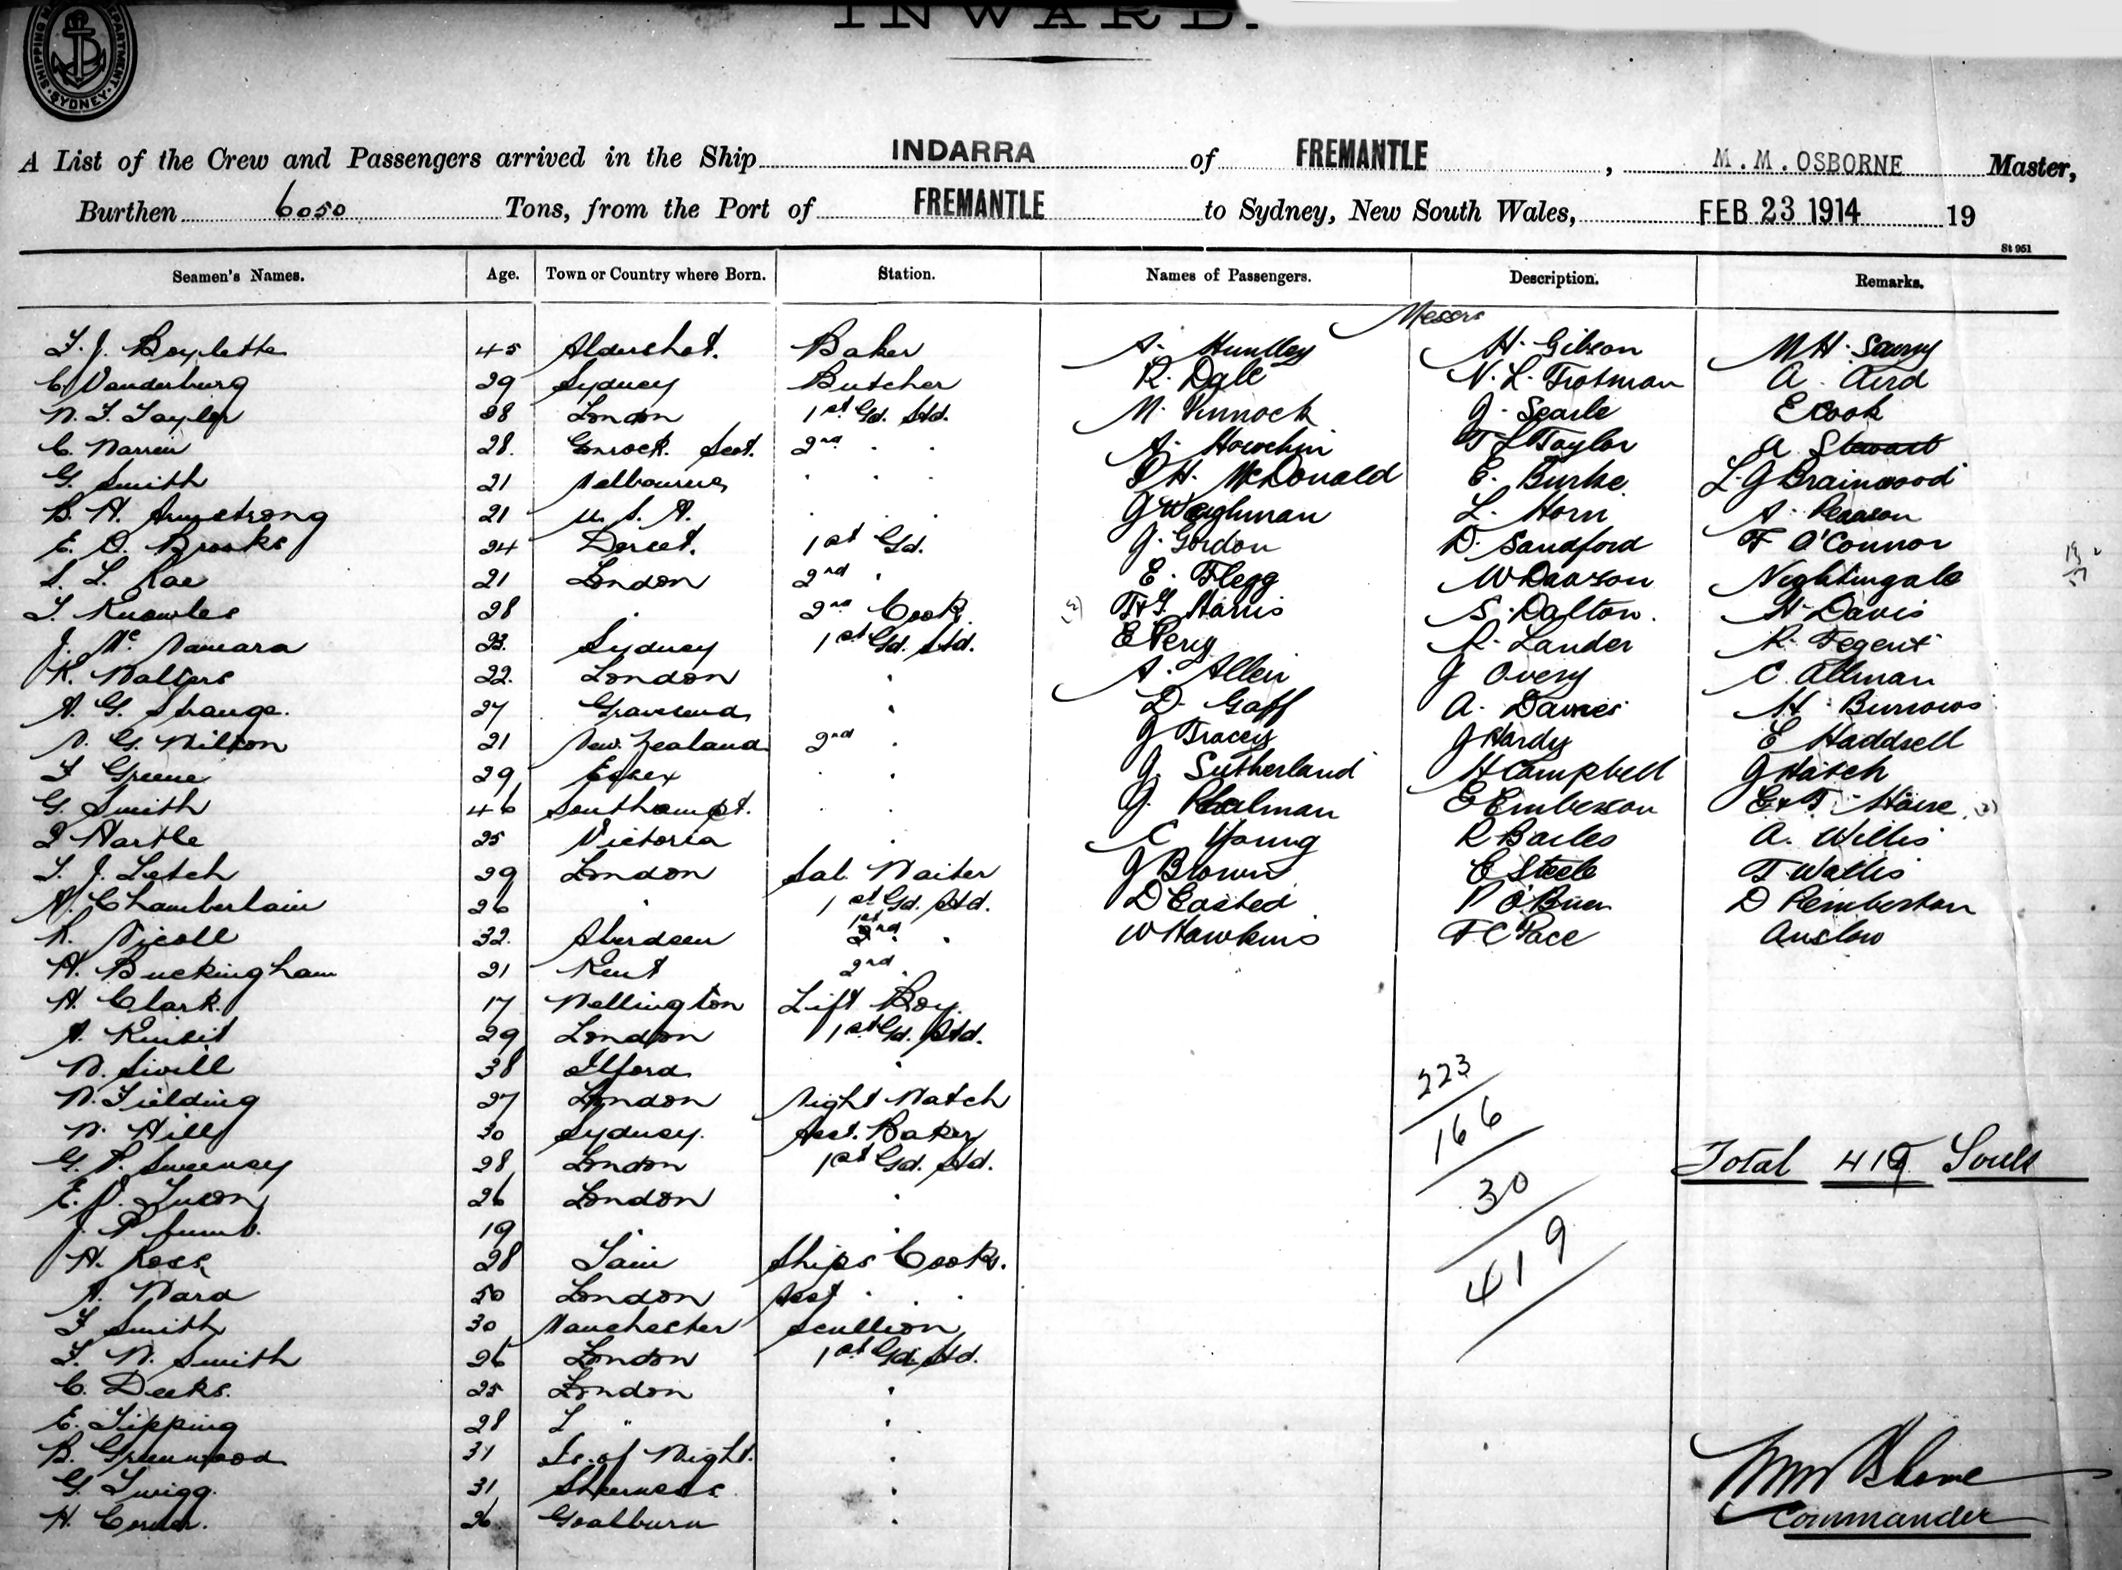 INWARD
SHIPPING DEPARTMENT SYDNEY
A List of the Crew and Passengers arrived in the Ship INDARRA of FREMANTLE, M. M. OSBORNE Master,
Burthen 6050 Tons, from the Port of FREMANTLE to Sydney, New South Wales, FEB 23 1914 19
St 951
Seamen's Names. Age. Town or Country where Born. Station. Names of Passengers. Description. Remarks.
Messrs
T. J. Boylette 45 Aldershot. Baker A. Huntley H. Gibson M H.
C. Vanderburg 29 Sydney Butcher R. Dale N. L. Trotman A. Aird
W. T. Taylor 28 London 1st Gd. Std. M. Pinnock J. Searle E Cook
C. 28. Gourock. Scot. 2nd . . A. Howchin T L Taylor A Stewart
G. Smith 21 Melbourne . . . H. McDonald E. Burke L. G Brainwood
B. H. Armstrong 21 U. S. A. . . . J Weighman L. Horn A. Pearson
E. O. Brooks 24 Dorset. 1st Gd. J. Gordon D. Sandford F O'Connor
S. L. Rae 21 London 2nd . E. Flegg W Dawson Nightingale
T. Knowles 28 . 2nd Cook. (2) T & G Harris S. Dalton. H. Davis
J. Mc Namara 23. Sydney 1st Gd. Std. E Perry R. Lander R. Tegent
R. Walters 22. London . A. Allen J Overy C. Allman
A. G. Strange. 27 Gravesend . D. Goff A. Davies H. Burrows
W. G. Wilton 21 New Zealand 2nd . J Tracey J Hardy E Haddsell
F Greene 29 Essex . . J. Sutherland H Campbell J Hatch
G. Smith 46 Southampt. . . J. Pearlman E Emberson E & T. (2)
Hartle 25 Victoria . C Young R Bailes A. Willis
T. J. Letch 29 London Sal. Waiter J Brown E Steele T Wallis
A. Chamberlain 26 . 1st Gd. Std. D Easted P O'Brien D Pemberton
R. Nicoll 32. Aberdeen 1st . . W Hawkins F C Pace Anslow
H. Buckingham 21 Kent 2nd .
H. Clark. 17 Wellington Lift Boy.
A. 29 London 1st Gd. Std.
W. Sivill 38 Ilford .
W. Fielding 27 London Night Watch
W. Hill 30 Sydney. Asst. Baker
G. P. Sweeney 28 London 1st Gd. Std.
E. V. 26 London .
J. P. 19 " .
H. Ross 28 Tain Ships Cook.
A. Ward 50 London Asst . . .
F Smith 30 Manchester Scullion
T. W. Smith 26 London 1st Gd. Std.
C. Deeks. 25 London .
E. Tipping 28 L " .
B. Greenwood 31 Is. of Wight. .
G. Twigg. 31 Sheerness .
H. 26 Goulburn .
223
166
30
419
Total 419 Souls
Commander